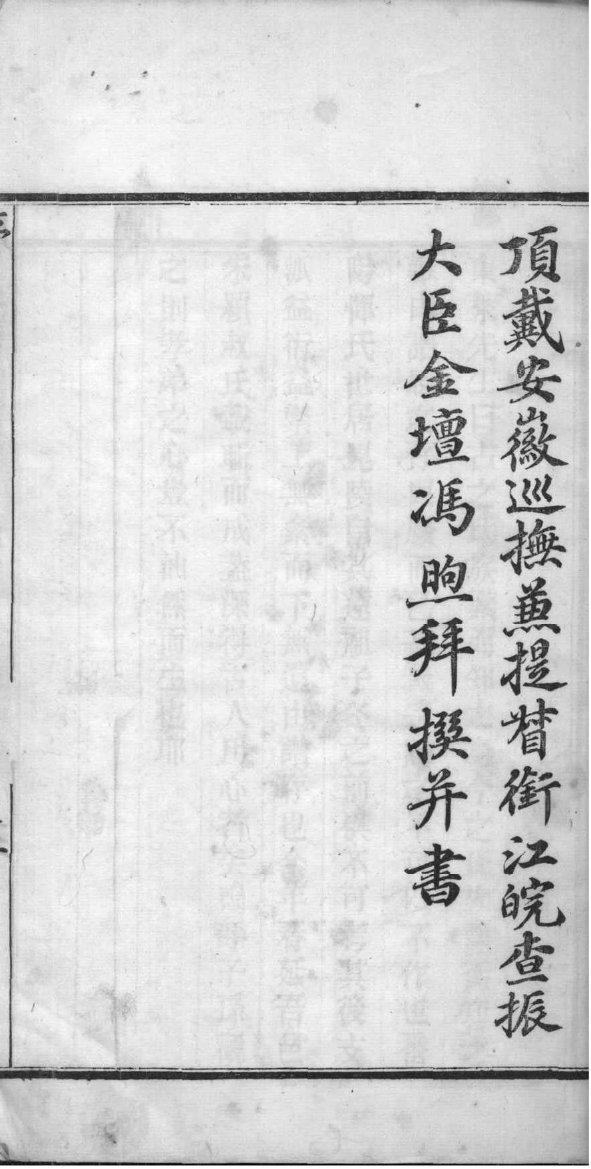 頂戴安徽巡撫兼提督銜江皖查振
大臣金壇馮煦拜撰并書